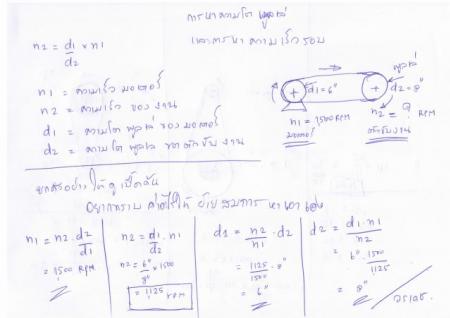 การหาความโต พูลเล่
และการหา ความเร็วรอบ
n2 = d1 x n1
d2
n1 = ความเร็ว มอเตอร์
n2 = ความเร็ว ของงาน
d1 = ความโต พูลเล่ ของ มอเตอร์
d2 = ความโต พูลเล่ ชุดตัวขับงาน
พูลเล่
d1=6"
d2=8"
n1 = 1500 RPM
มอเตอร์
n2 = ? RPM
ตัวขับงาน
ยกตัวอย่าง ให้ ดู เป็น
อยากทราบ ค่าอะไรให้ ย้าย สมการ หาเอา เอง
n1 = n2 . d2
d1
= 1500 RPM
n2 = d1 . n1
d2
n2 = 6" x 1500
8"
= 1125 RPM
d1 = n2 . d2
n1
= 1125 . 8"
1500
= 6"
d2 = d1 . n1
n2
= 6 . 1500
1125
= 8"